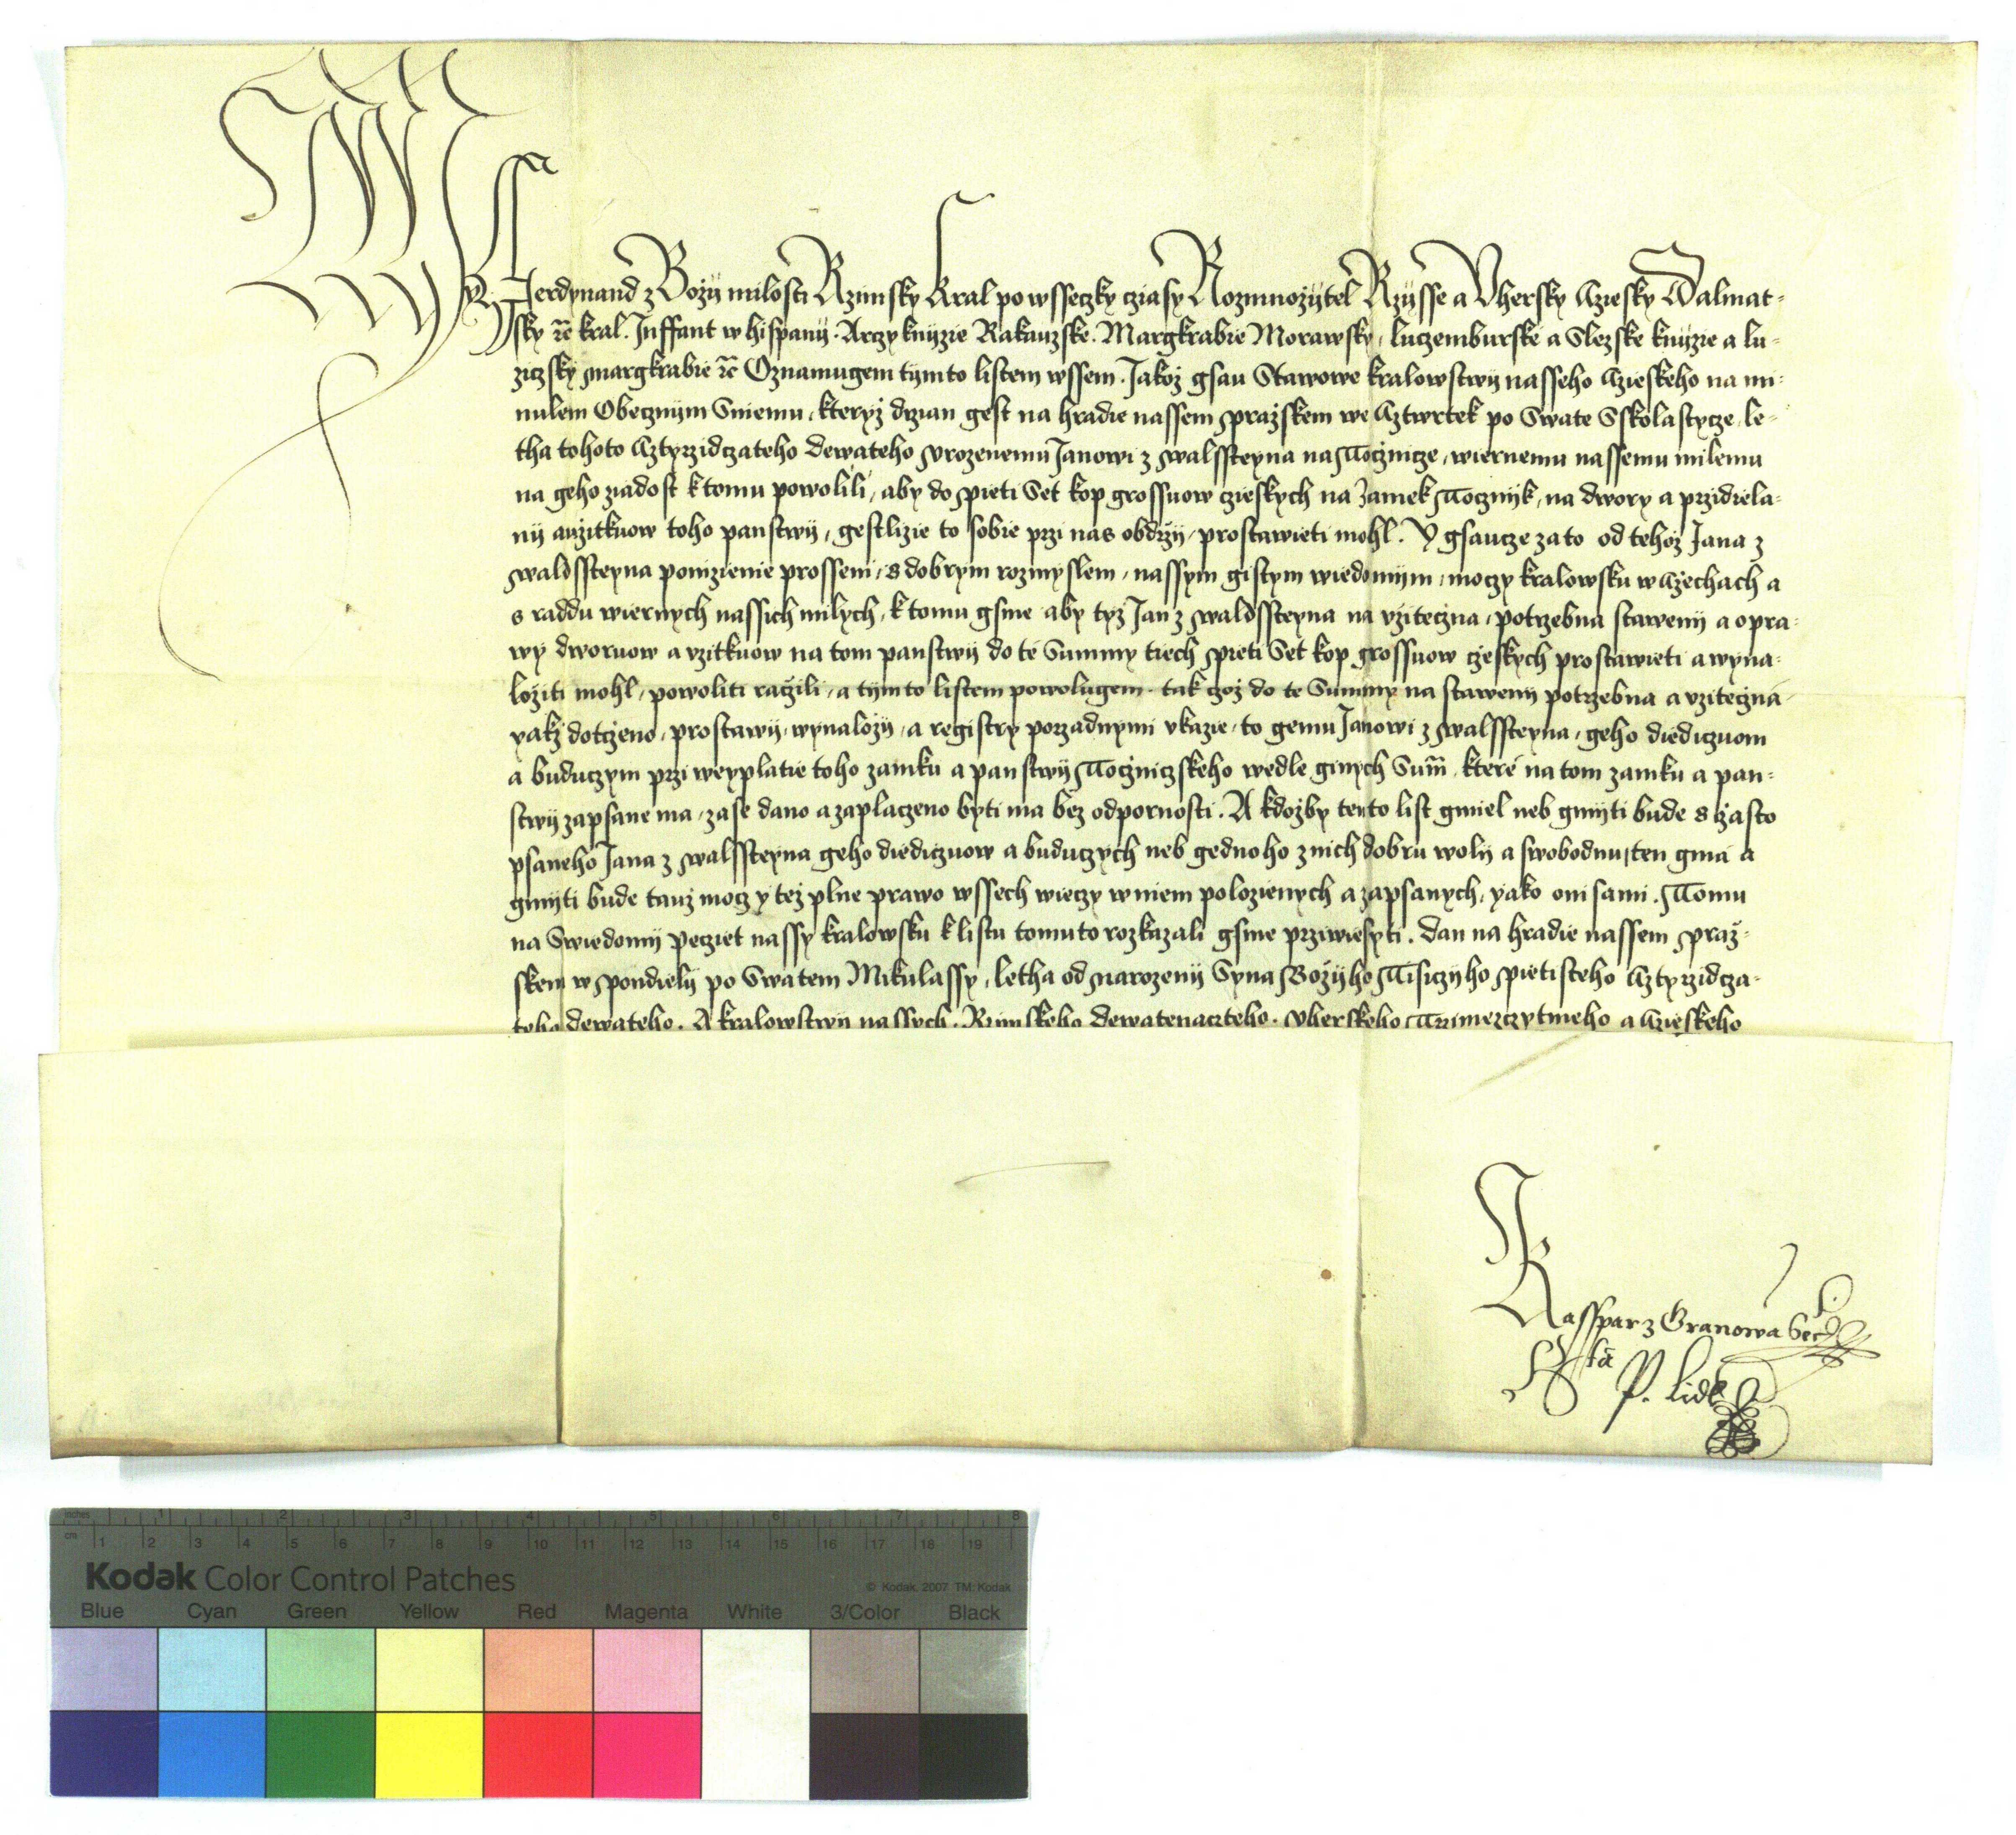 My Ferdynand z Bozij milosti Rzimsky Kral po wsseczky cziasy Rozmnozytel Rzysse a Vhersky Cziesky Dalmat-
sky rc kral. Inffant w hispanij. Arczyknyzie Rakauzske. Margkrabie Morawsky, luczemburske a Slezske knyzie a lu-
ziczsky margkrabie rc Oznamugem tymto listem wssem. Jakoz gsau Stawowe kralowstwij nasseho Czieskeho na mi-
nulem Obecznym Sniemu, kteryz drzan gest na hradie nassem prazskem we Cztwrtek po Swate Sskolastycze, le-
tha tohoto Cztyrzidczateho dewateho vrozenemu Janowi z walssteyna na Tocznicze, wiernemu nassemu milemu
na geho ziadost k tomu powolili, aby do pieti Set kop grossuow czieskych na Zamek Tocznijk, na dwory a przidiela-
nij auzitkuow toho panstwij, gestlizie to sobie przi nas obdrzij, prostawieti mohl. Y gsaucze za to od tehoz Jana z
waldssteyna ponizienie prosseni, s dobrym rozmyslem, nassym gistym wiedomijm, moczy kralowsku w Czechach a
s raddu wiernych nassich milych, k tomu gsme aby tyz Jan z waldssteyna na vziteczna, potrzebna stawenij a opra-
wy dworuow a vzitkuow na tom panstwij do te Summy tiech pieti Set kop grossuow czeskych prostawieti a wyna-
loziti mohl, powoliti raczili, a tymto listem powolugem. tak czoz do te Summy na stawenij potrzebna a vziteczna
yakz dotczeno, prostawij, wynalozij, a registry porzadnymi vkazie, to gemu Janowi z walssteyna, geho diediczuom
a buduczym przi weyplatie toho zamku a panstwij Toczniczskeho wedle ginych Sum, ktere na tom zamku a pan-
stwij zapsane ma, zase dano a zaplaczeno byti ma bez odpornosti. A kdozby tento list gmiel neb gmijti bude s czasto
psaneho Jana z walssteyna geho diediczuow a buduczych neb gednoho z nich dobru woly a swobodnu, ten gma a
gmijti bude tauz mocz y tez plne prawo wssech wieczy w niem polozienych a zapsanych, yako oni sami. Tomu
na Swiedomij Pecziet nassy kralowsku k listu tomuto rozkazali gsme przywiesyti. Dan na hradie nassem praz-
skem w pondielij po Swatem Mikulassy, letha od narozenij Syna Bozijho Tisiczyho pietisteho Cztyrzidcza-
teho dewateho. A kralowstwij nassych. Rzimskeho dewatenaczteho. Vherskeho Trzimezczytmeho a Czieskeho
Kasspar z Granowa Secr
Rta P. Lidl
inches 1 2 3 4 5 6 7 8
cm 1 2 3 4 5 6 7 8 9 10 11 12 13 14 15 16 17 18 19
Kodak Color Control Patches
© Kodak, 2007 TM: Kodak
Blue Cyan Green Yellow Red Magenta White 3/Color Black